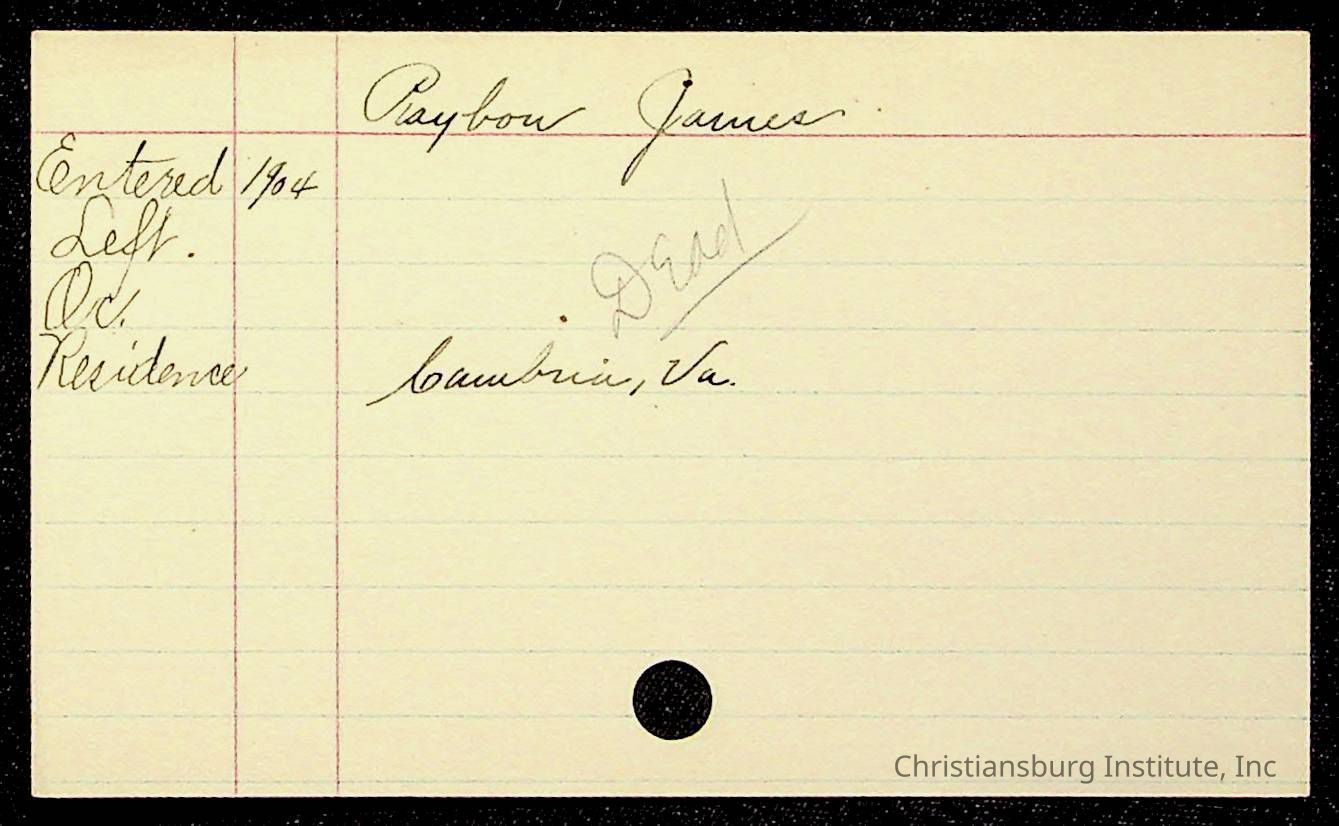 Raybow James
Entered 1904
Left.
Dead
Oc.
Residence Cambria, Va.
Christiansburg Institute, Inc